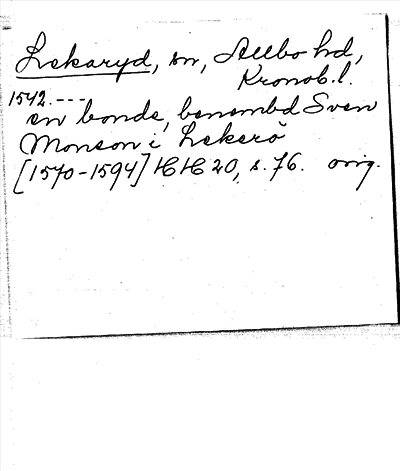 Lekaryd, sn, Allbo hd,
Kronob.l.
1542.---
en bonde, benembd Sven
Monson i Lekerö
[1570-1594] HH 20, s. 76. orig.